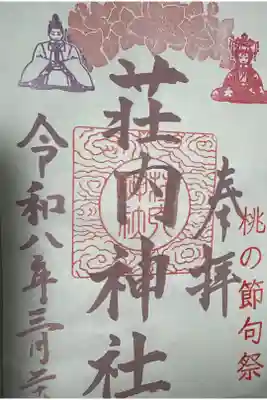 桃の節句祭
奉拝
荘内神社
令和八年三月